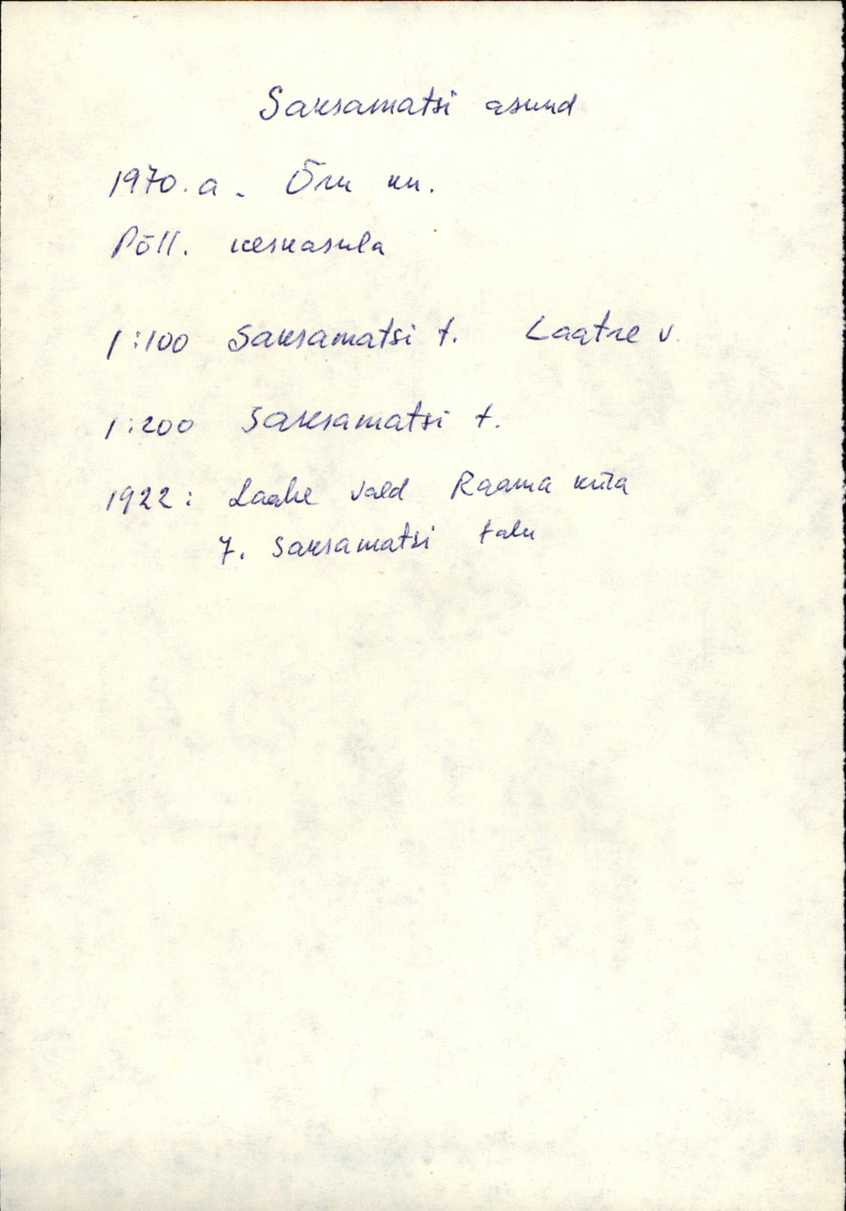 Saksamatsi asund
1970.a. Õru kn.
Põll. keskasula
1:100 Saksamatsi t. Laatre v.
1:200 Saksamatsi t.
1922: Laatre vald Raama küla
7. Saksamatsi talu